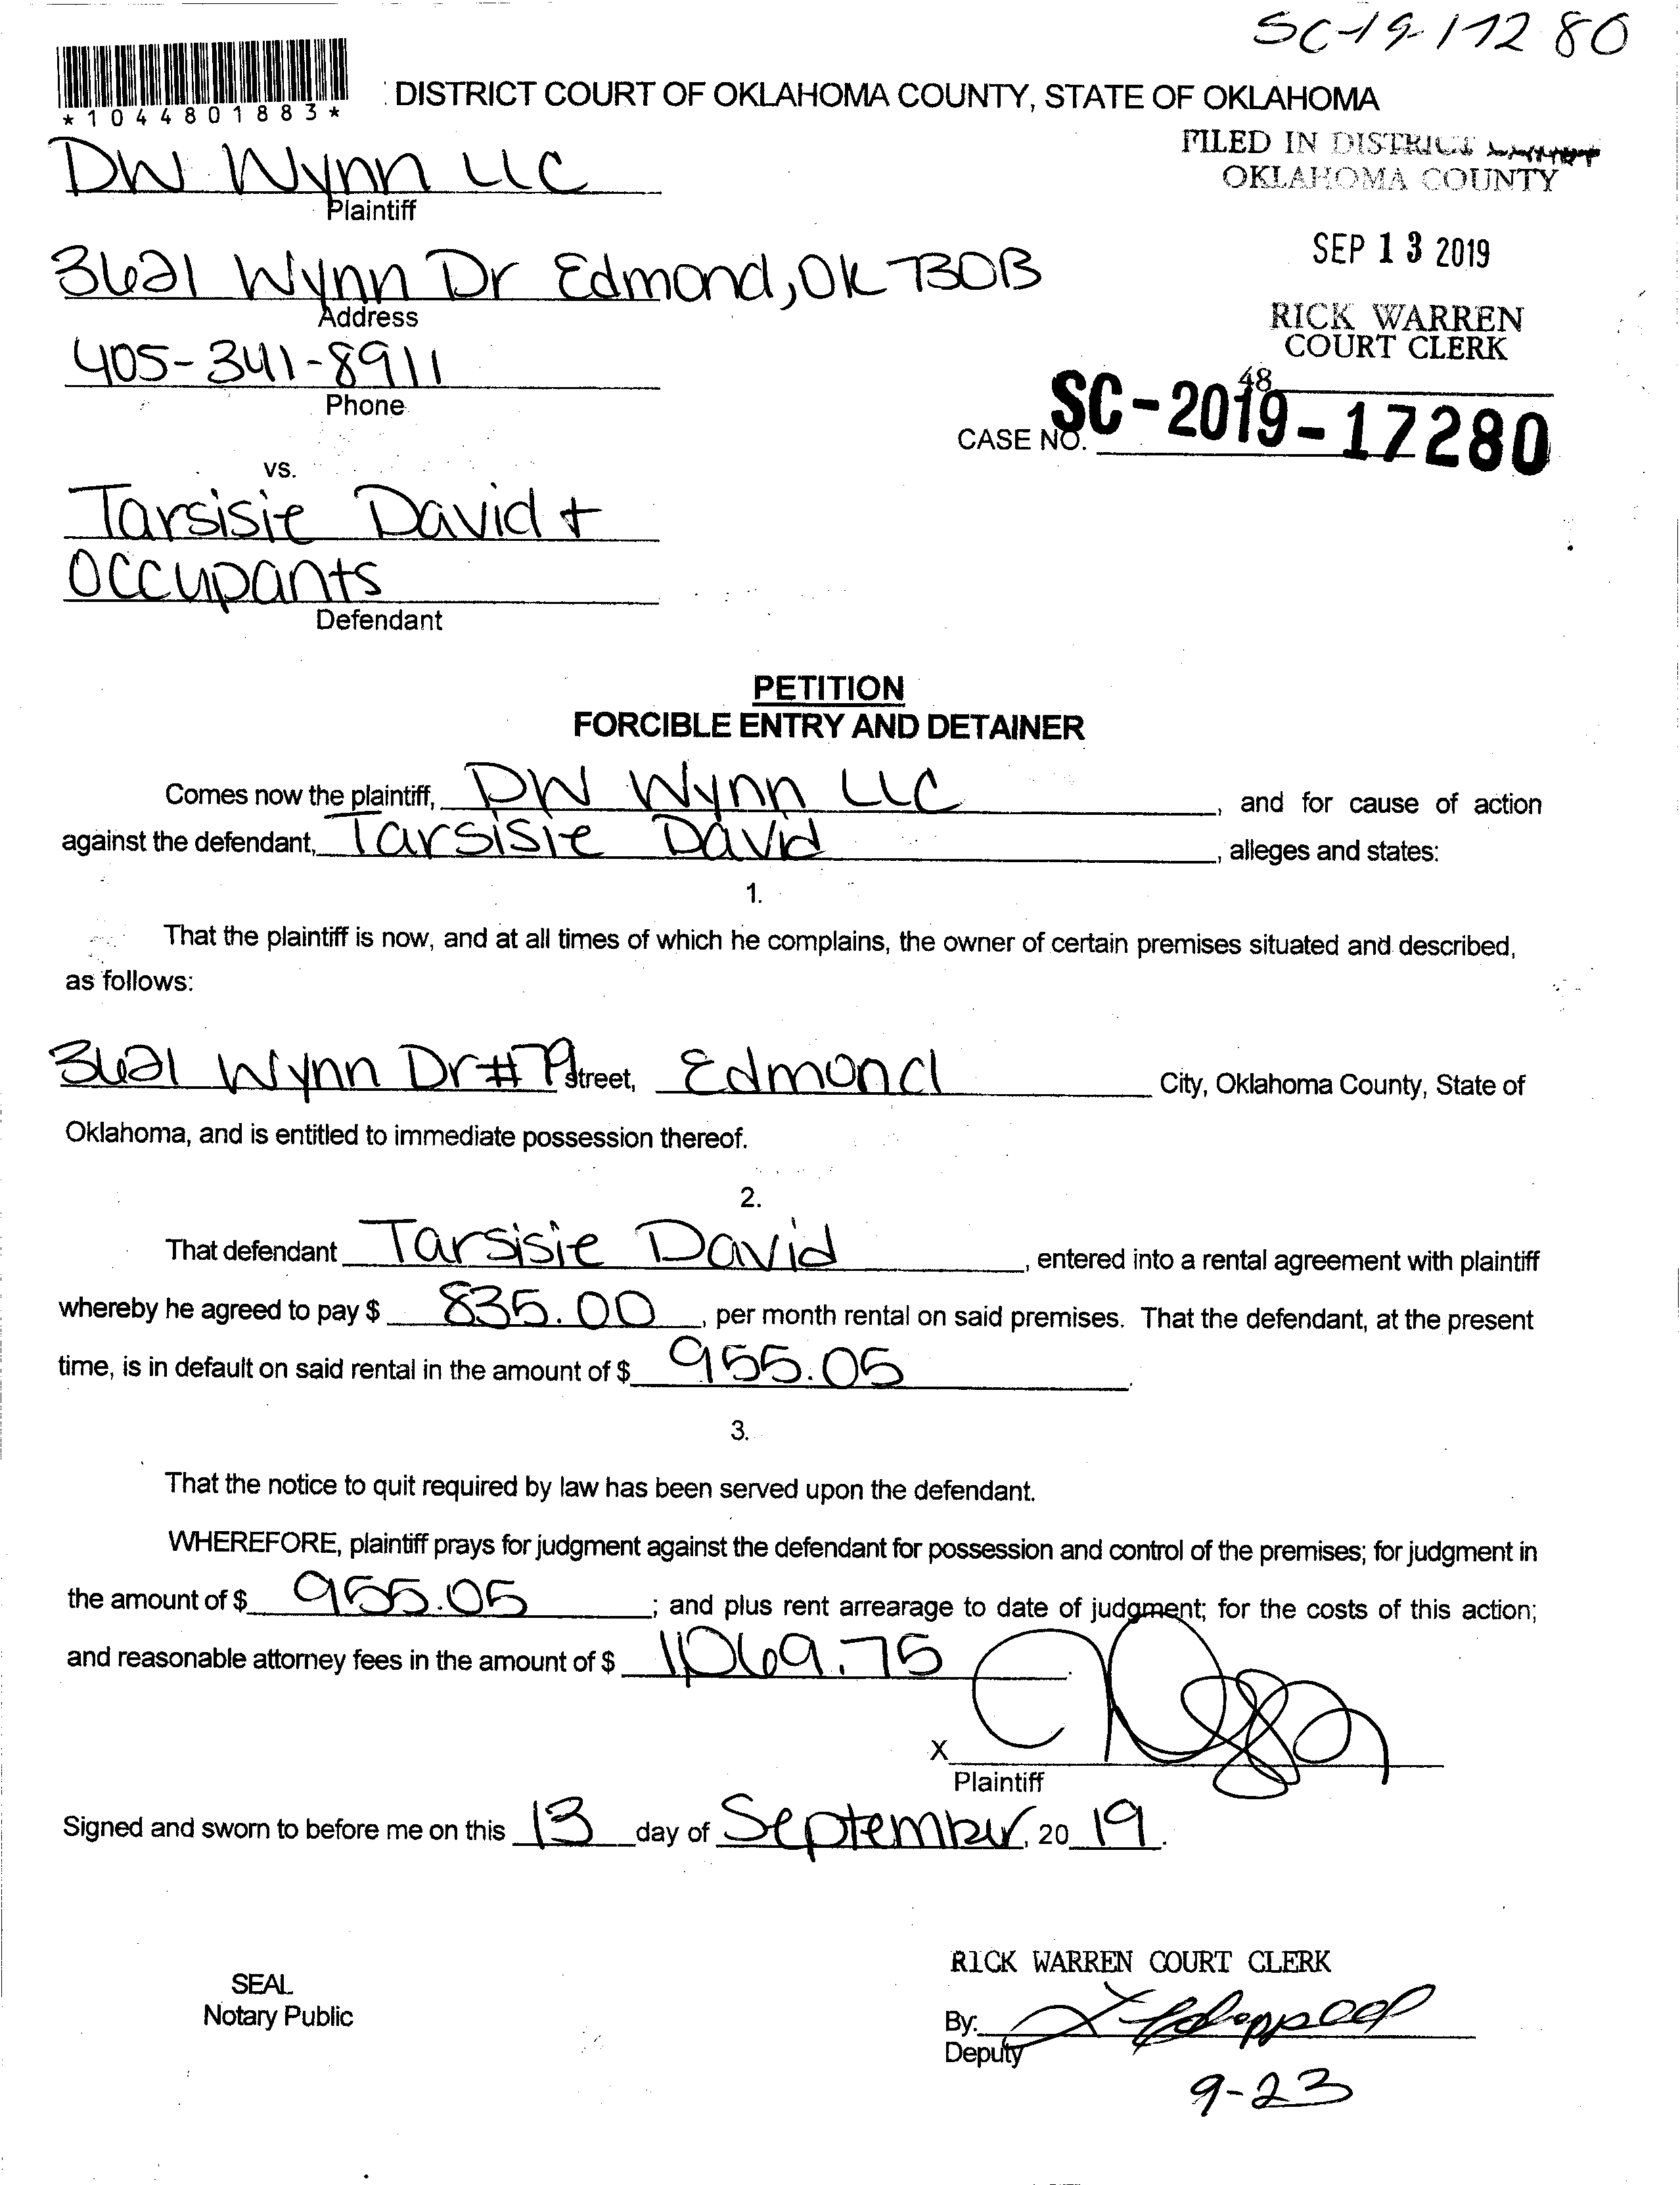 SC-19-17280
*1044801883*
DISTRICT COURT OF OKLAHOMA COUNTY, STATE OF OKLAHOMA
FILED IN DISTRICT COURT
OKLAHOMA COUNTY
DW Wynn LLC
Plaintiff
SEP 13 2019
3621 Wynn Dr Edmond, OK 73013
Address
RICK WARREN
COURT CLERK
405-341-8911
Phone
48
CASE NO. SC-2019-17280
vs.
Tarsisie David +
Occupants
Defendant
PETITION
FORCIBLE ENTRY AND DETAINER
Comes now the plaintiff, DW Wynn LLC, and for cause of action
against the defendant, Tarsisie David, alleges and states:
1.
That the plaintiff is now, and at all times of which he complains, the owner of certain premises situated and described,
as follows:
3621 Wynn Dr #79 Street, Edmond City, Oklahoma County, State of
Oklahoma, and is entitled to immediate possession thereof.
2.
That defendant Tarsisie David, entered into a rental agreement with plaintiff
whereby he agreed to pay $ 835.00, per month rental on said premises. That the defendant, at the present
time, is in default on said rental in the amount of $ 955.05.
3.
That the notice to quit required by law has been served upon the defendant.
WHEREFORE, plaintiff prays for judgment against the defendant for possession and control of the premises; for judgment in
the amount of $ 955.05; and plus rent arrearage to date of judgment; for the costs of this action;
and reasonable attorney fees in the amount of $ 1,069.75.
X
Plaintiff
Signed and sworn to before me on this 13 day of September, 2019.
RICK WARREN COURT CLERK
SEAL
Notary Public
By:
Deputy
9-23